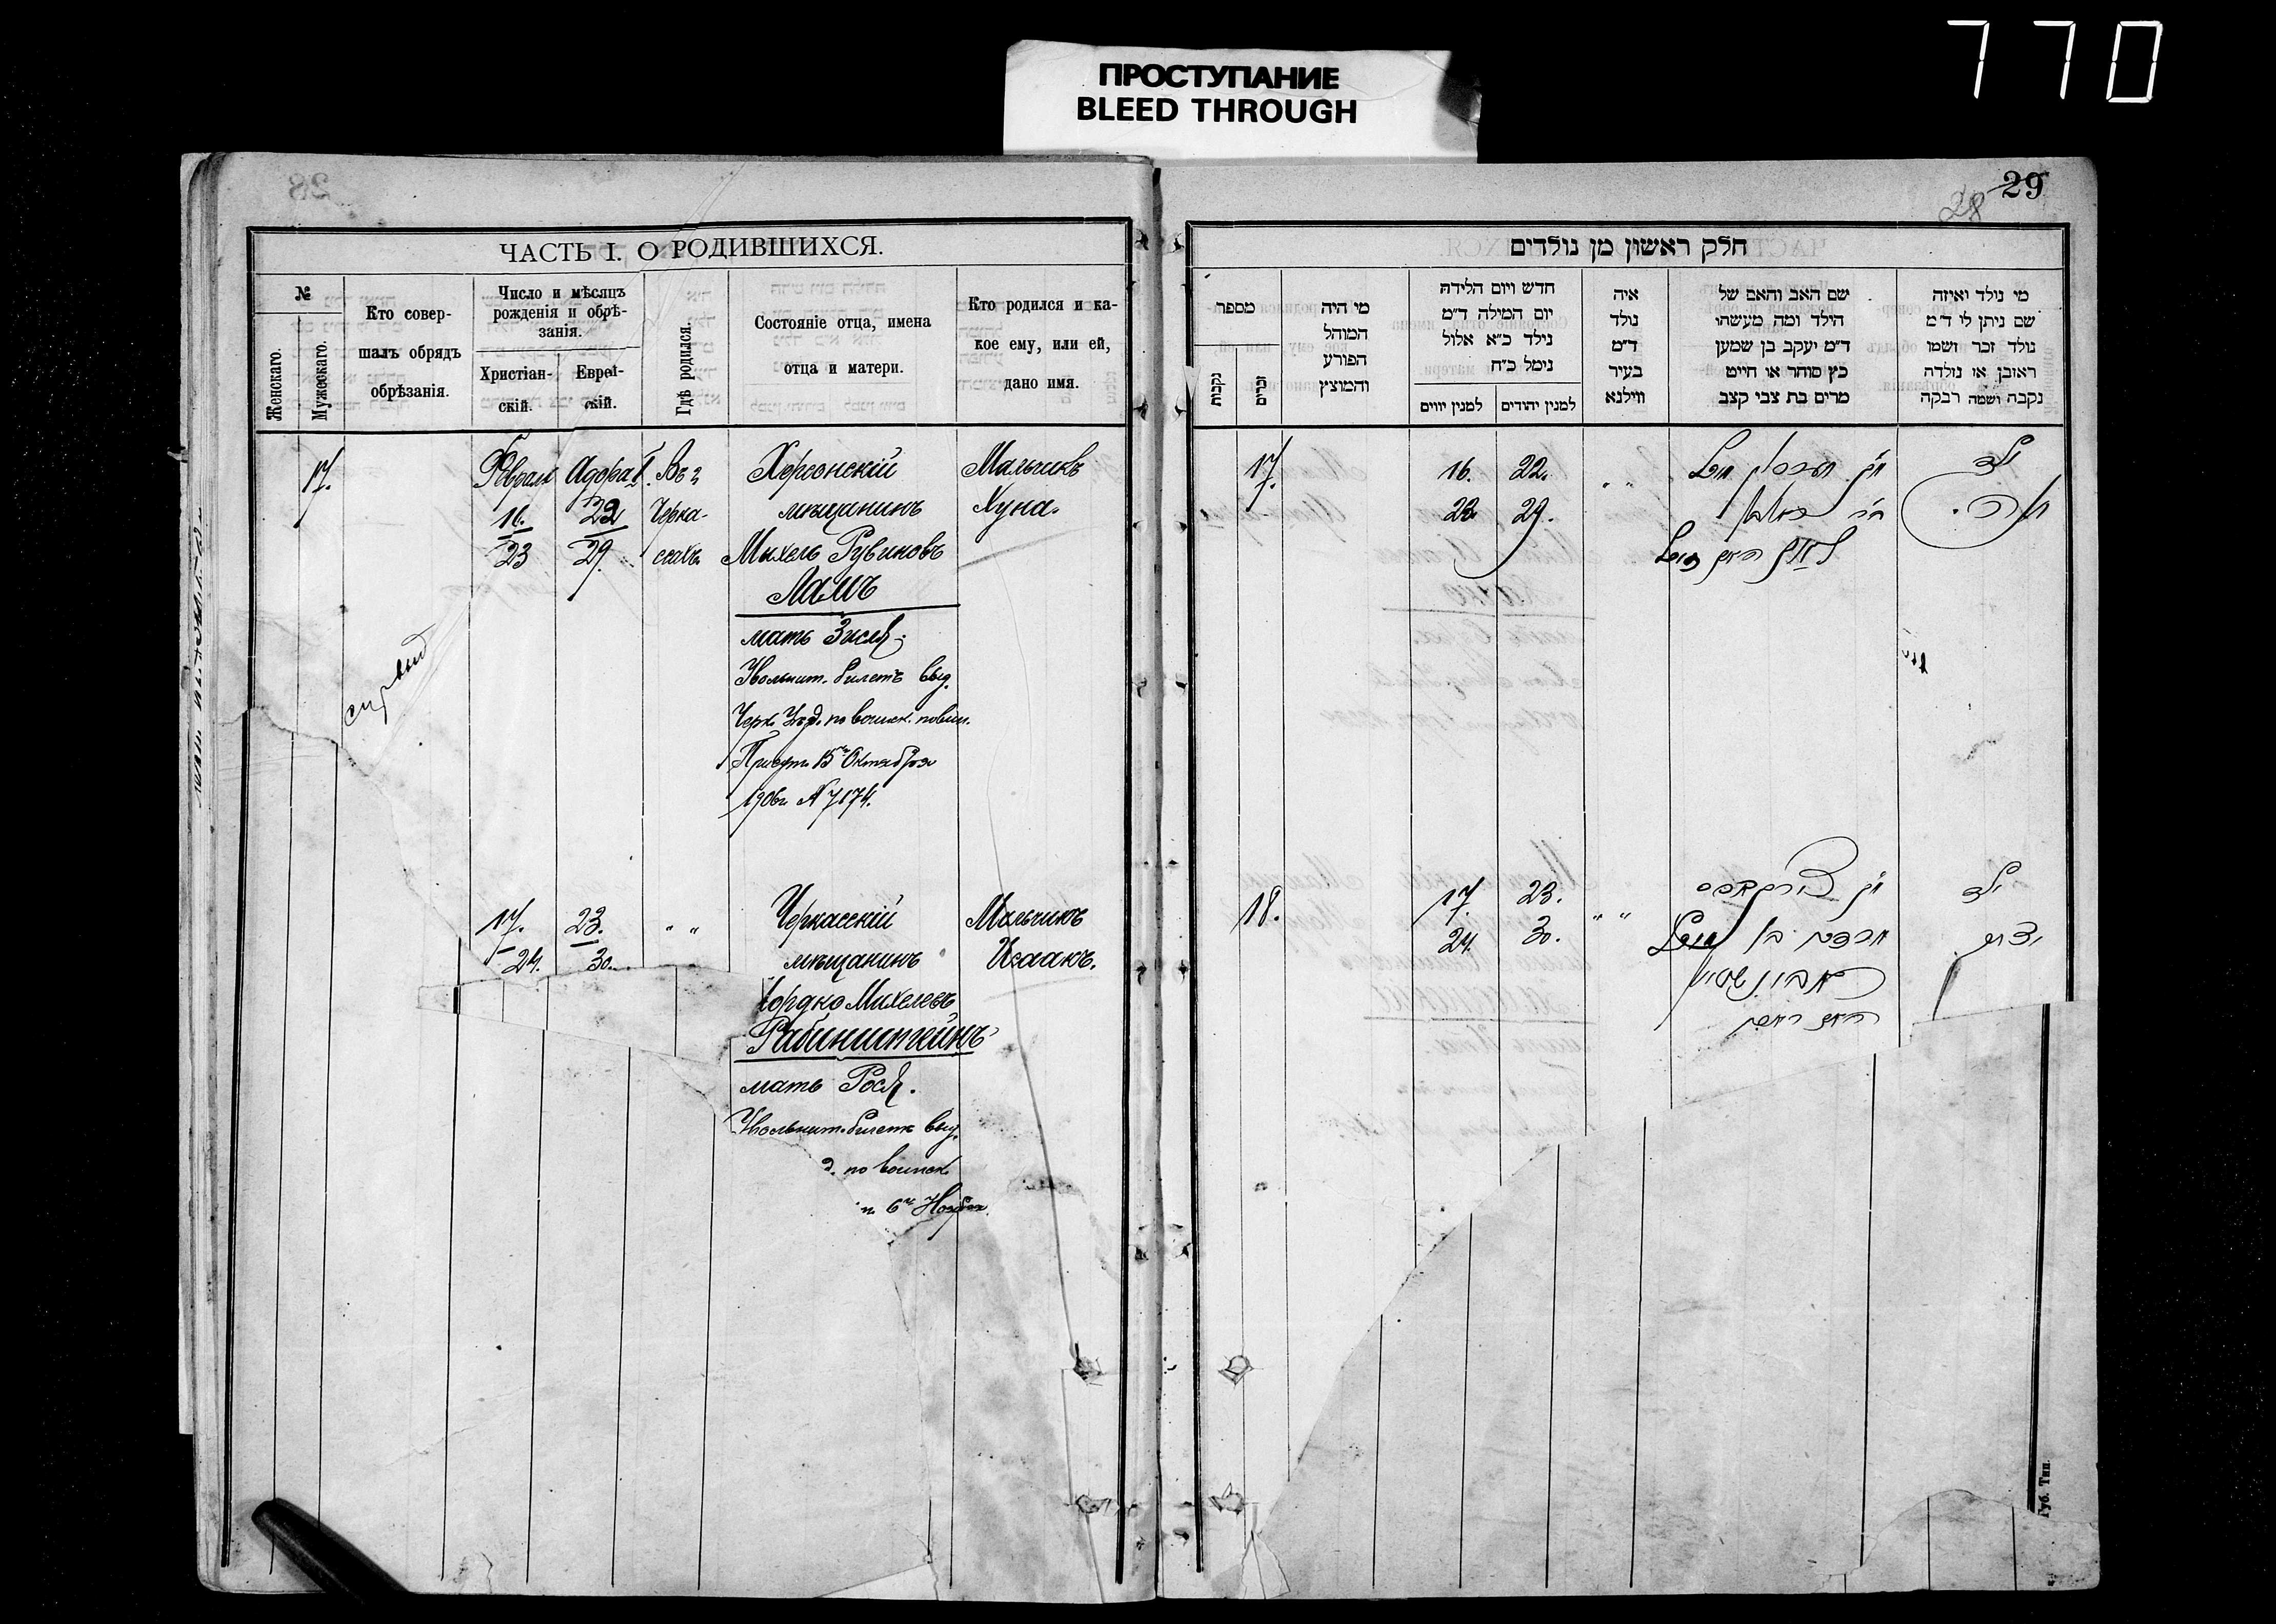 770
ПРОСТУПАНИЕ
BLEED THROUGH
28
ЧАСТЬ I. О РОДИВШИХСЯ.
№
Женскаго.
Мужескаго.
Кто совер-
шалъ обрядъ
обрѣзанія.
Число и мѣсяцъ
рожденія и обрѣ-
занія.
Христіан-
скій.
Еврей-
скій.
Гдѣ родился.
Состояніе отца, имена
отца и матери.
Кто родился и ка-
кое ему, или ей,
дано имя.
17.
Февраля
16.
23
Адора I
22
29.
Въ г
Черка-
сахъ
Херсонскій
мѣщанинъ
Михель Рувиновъ
Ламъ
мать Зисля.
Увольнит. билетъ выд.
Черк. Уѣзд. по воинск. повин.
Присут. 15го Октября
1906г. № 7174.
Мальчикъ
Хуна.
17.
24.
23.
30.
" "
Черкасскій
мѣщанинъ
Мордко Михелевъ
мать Рося.
Увольнит. билетъ выд.
д. по воинск.
6го Ноября
Мальчикъ
Исаакъ.
29
28
חלק ראשון מן נולדים
מספר
נקבות
זכרים
מי היה
המוהל
הפורע
והמוצץ
חדש ויום הלידה
יום המילה ד"מ
נילד כ"א אלול
נימל כ"ח
למנין יווים
למנין יהודים
איה
נולד
ד"מ
בעיר
ווילנא
שם האב והאם של
הילד ומה מעשהו
ד"מ יעקב בן שמען
כץ סוהר או חייט
מרים בת צבי קצב
מי נולד ואיזה
שם ניתן לו ד"מ
נולד זכר ושמו
ראובן או נולדה
נקבה ושמה רבקה
17.
16.
23.
22.
29.
" "
ילד
18.
17.
24.
23.
30.
" "
מרדכי בן
ילד
יצחק
Губ. Тип.